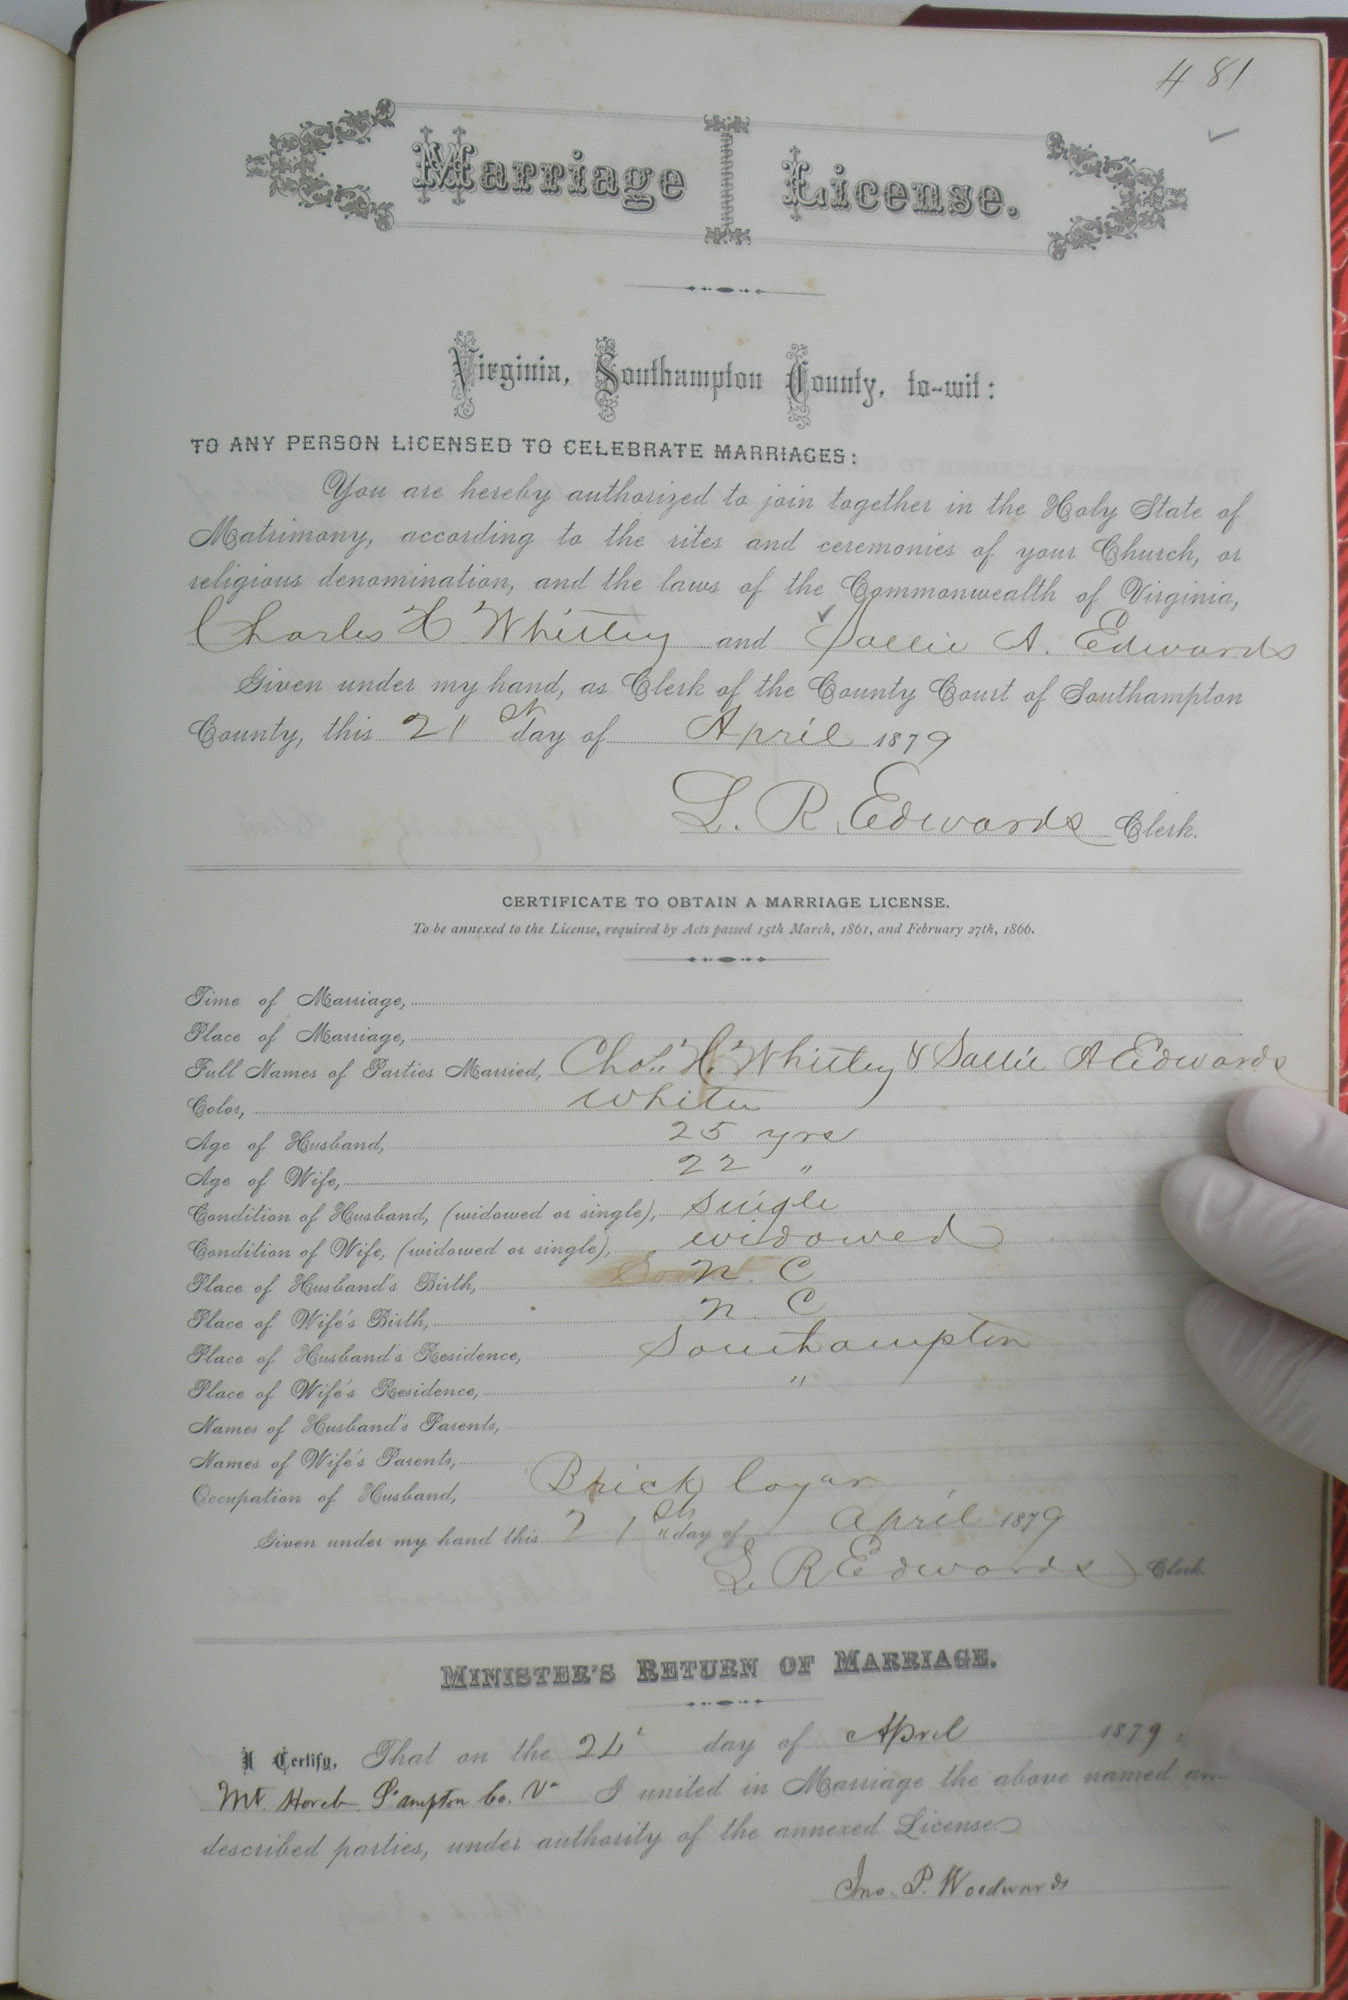 481
Marriage License.
Virginia, Southampton County, to-wit:
TO ANY PERSON LICENSED TO CELEBRATE MARRIAGES:
You are hereby authorized to join together in the Holy State of
Matrimony, according to the rites and ceremonies of your Church, or
religious denomination, and the laws of the Commonwealth of Virginia,
Charles H Whitley and Sallie A. Edwards
Given under my hand, as Clerk of the County Court of Southampton
County, this 21st day of April 1879
L. R. Edwards Clerk.
CERTIFICATE TO OBTAIN A MARRIAGE LICENSE.
To be annexed to the License, required by Acts passed 15th March, 1861, and February 27th, 1866.
Time of Marriage,
Place of Marriage,
Full Names of Parties Married, Chas. H. Whitley & Sallie A Edwards
Color, White
Age of Husband, 25 yrs
Age of Wife, 22 "
Condition of Husband, (widowed or single), single
Condition of Wife, (widowed or single), widowed
Place of Husband's Birth, N. C
Place of Wife's Birth, N. C
Place of Husband's Residence, Southampton
Place of Wife's Residence, "
Names of Husband's Parents,
Names of Wife's Parents,
Occupation of Husband, Brick layer
Given under my hand this 21st day of April 1879
L. R Edwards Clerk.
MINISTER'S RETURN OF MARRIAGE.
I Certify, That on the day of April 1879,
Mt. Horeb S.ampton Co. Va I united in Marriage the above named an
described parties, under authority of the annexed License
Jno. P. Woodward